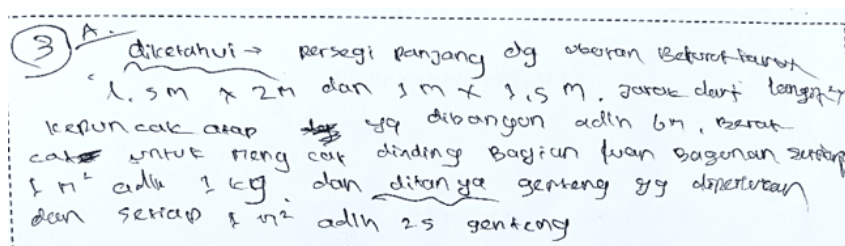 3 A.
diketahui → persegi panjang dg ukuran berturut-turut
1.5m x 2m dan 1m x 1,5m. Jarak dari langit²
kepuncak atap yg dibangun adlh 6m, Berat
cat untuk mengcat dinding Bagian luar Bagunan setiap
1 m² adlh 1 kg. dan ditanya genteng yg diperlukan
dan setiap 1 m² adlh 25 genteng